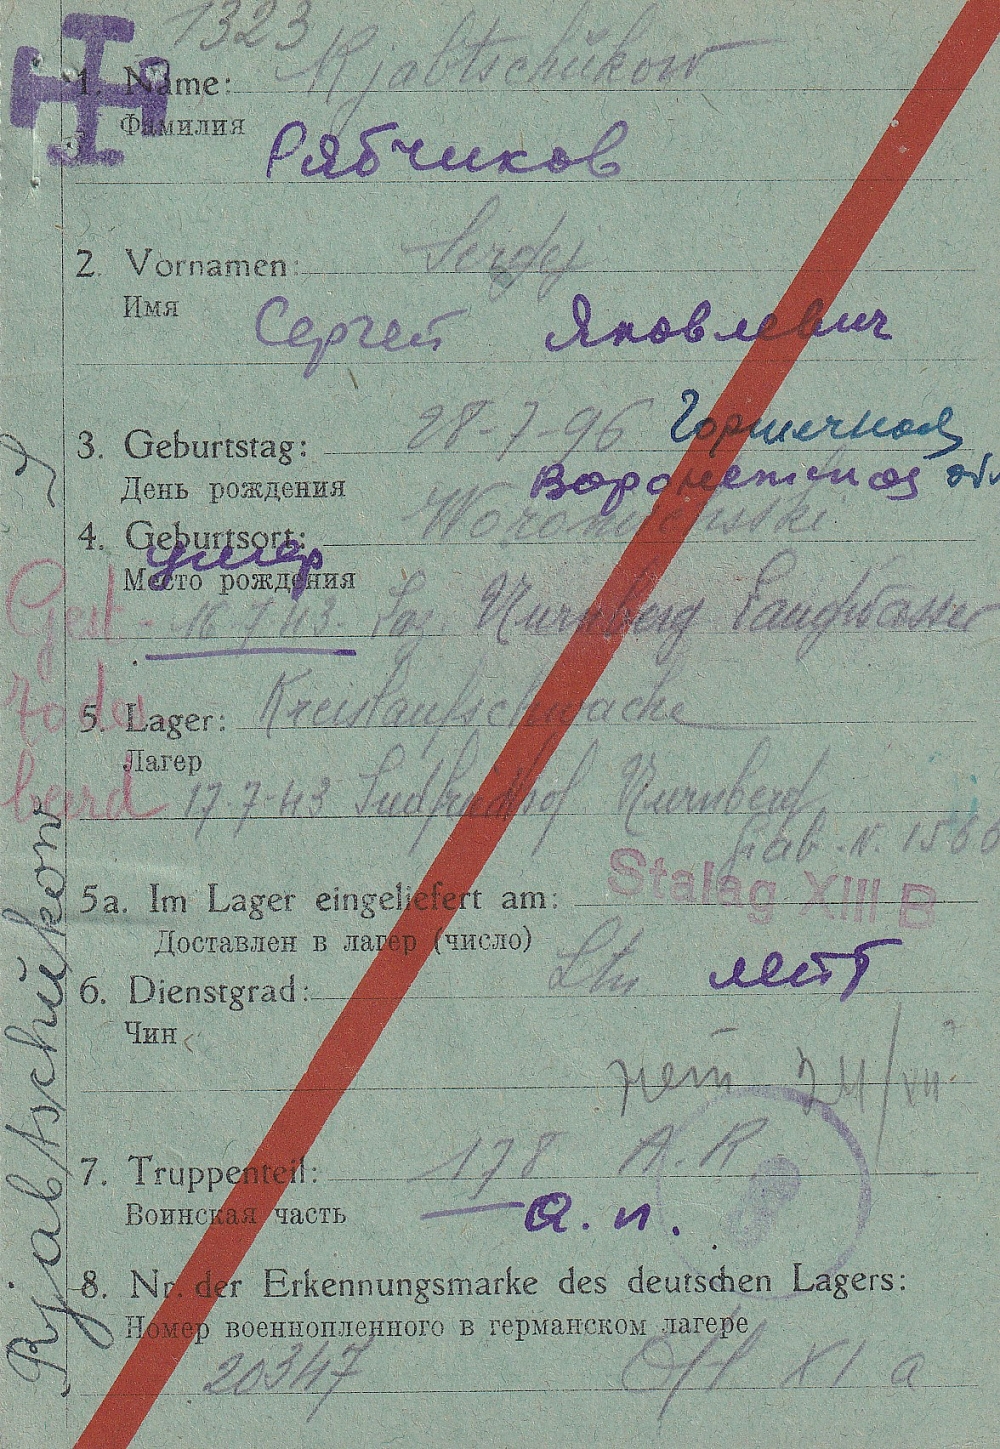 1323
1. Name: Rjabtschŭkow
Фамилия
Рябчиков
2. Vornamen: Sergej
Имя
Сергей Яковлевич
3. Geburtstag: 28-7-96 Горшечное
День рождения Воронежской об
4. Geburtsort:
умер
Место рождения
Gest. 16.7.43 Laz. Nürnberg Langwasser
5. Lager: Kreislaufschwäche
Лагер
beerd 17.7.43 Südfriedhof Nürnberg
Grab. N.
5a. Im Lager eingeliefert am: Stalag XIII B
Доставлен в лагер (число)
6. Dienstgrad: Ltn лейт
Чин
нет
7. Truppenteil: 178 A.R
Воинская часть а.п.
8. Nr. der Erkennungsmarke des deutschen Lagers:
Номер военнопленного в германском лагере
20347 Ofl XI a
Rjabtschŭkow S